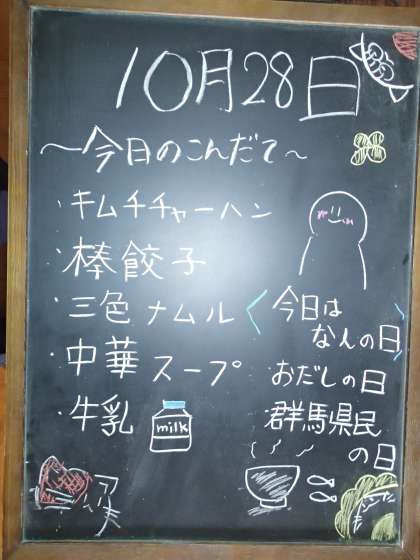 10月28日
~今日のこんだて~
・キムチチャーハン
・棒餃子
・三色ナムル
・中華スープ
・牛乳
milk
〈今日は
なんの日〉
おだしの日
群馬県民
の日